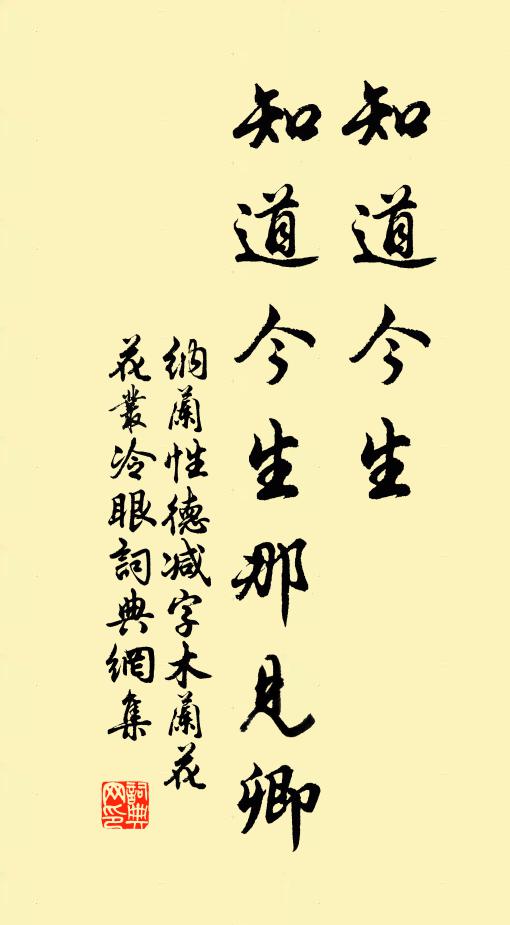 知道今生
知道今生那見卿
納蘭性德減字木蘭花
花叢冷眼詞典網集
詞典網印